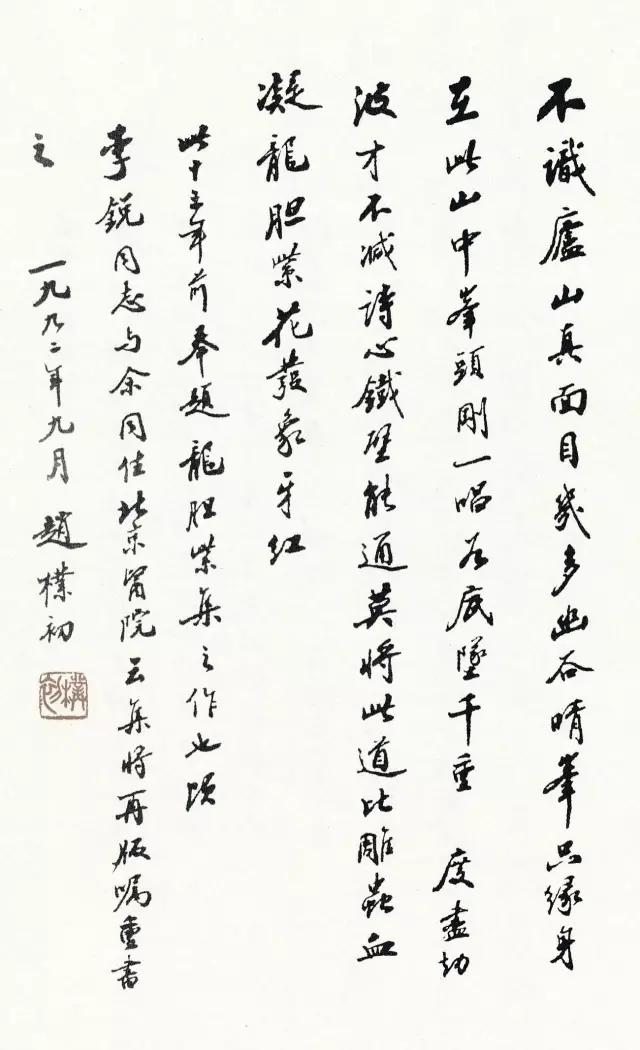 不識廬山真面目幾多幽谷晴峯只緣身
在此山中峯頭剛一唱谷底墜千重　度盡劫
波才不減詩心鐵壁能通莫將此道比雕蟲血
凝龍胆紫花發象牙紅
此十三年前奉題龍胆紫集之作也頃
李銳同志与余同住北京医院云集将再版嘱重書
之　一九九二年九月　趙樸初
樸初